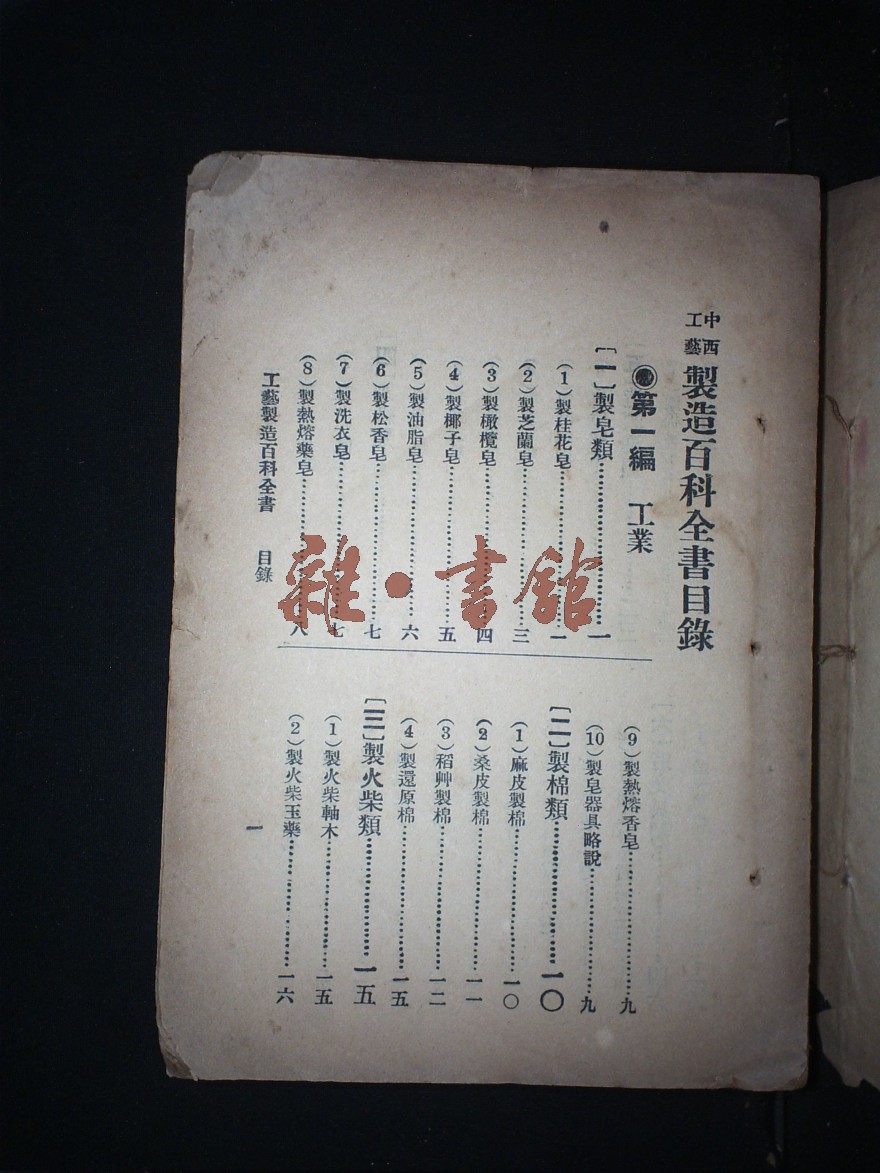 中西
工藝
製造百科全書目錄
第一編 工業
〔一〕製皂類…………一
(1)製桂花皂…………一
(2)製芝蘭皂…………三
(3)製橄欖皂…………四
(4)製椰子皂…………五
(5)製油脂皂…………六
(6)製松香皂…………七
(7)製洗衣皂…………七
(8)製熱熔藥皂…………八
(9)製熱熔香皂…………九
(10)製皂器具略說…………九
〔二〕製棉類…………一〇
(1)麻皮製棉…………一〇
(2)桑皮製棉…………一一
(3)稻艸製棉…………一二
(4)製還原棉…………一五
〔三〕製火柴類…………一五
(1)製火柴軸木…………一五
(2)製火柴玉藥…………一六
工藝製造百科全書 目錄
一
雜·書館